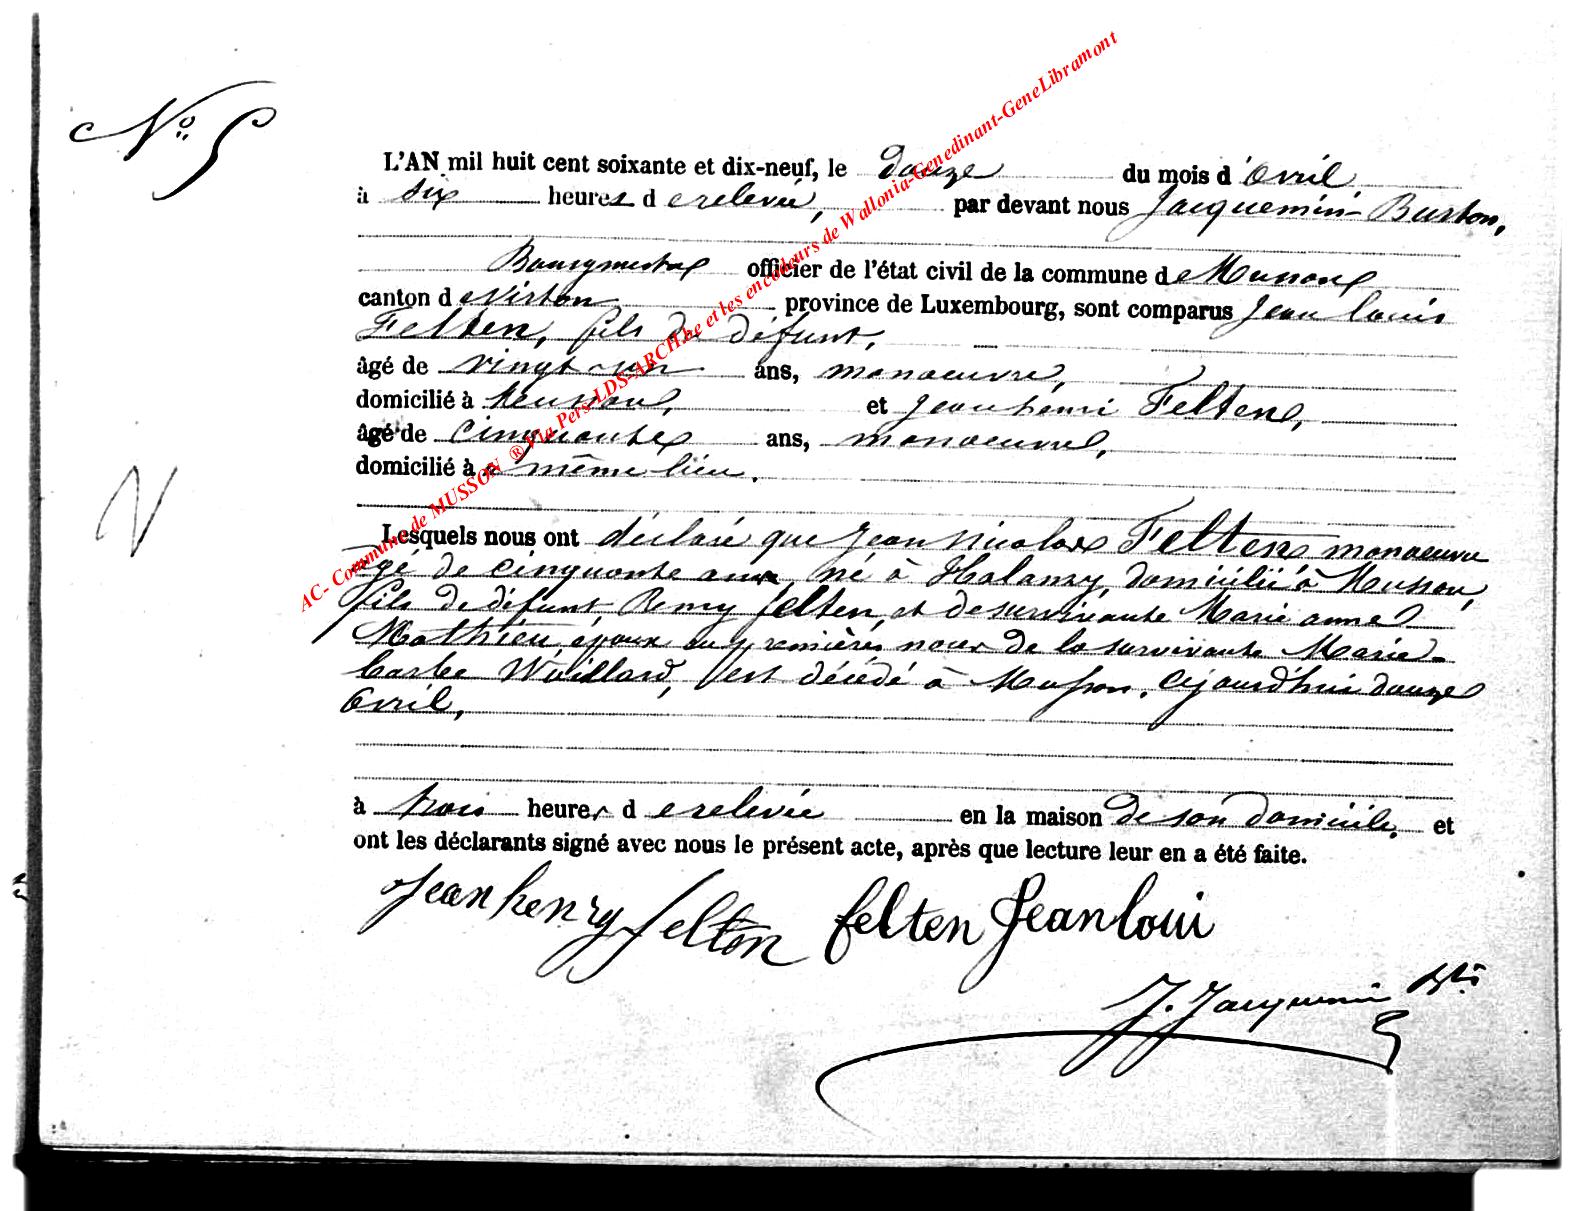 N° 5
L'AN mil huit cent soixante et dix-neuf, le douze du mois d'avril
à six heures d erelevée, par devant nous Jacquemin Burton,
Bourgmestre officier de l'état civil de la commune de Musson
canton de Virton province de Luxembourg, sont comparus Jean louis
Felten, fils du défunt,
âgé de vingt-un ans, manoeuvre,
domicilié à Musson, et Jean henri Felten,
âgé de cinquante ans, manoeuvre,
domicilié à même lieu.
Lesquels nous ont déclaré que Jean Nicolas Felten manoeuvre
âgé de cinquante ans, né à Halanzy, domicilié à Musson,
fils de défunt Remy felten, et de survivante Marie anne
Mathieu, époux en premières noces de la survivante Marie-
barbe Wuillard, est décédé à Musson, cejourd'hui douze
avril,
à trois heures d erelevée en la maison de son domicile, et
ont les déclarants signé avec nous le présent acte, après que lecture leur en a été faite.
Jean henry felten felten Jean loui
J. Jacquemin
AC- Commune de MUSSON ® Via Pers-LDS-ARCH.be et les encodeurs de Wallonia-Genedinant-GeneLibramont